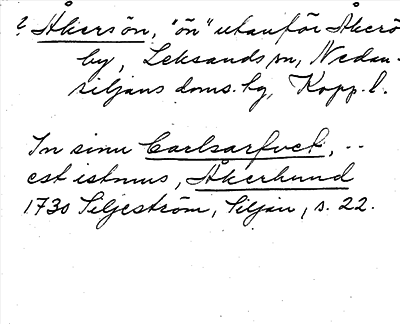 ? Åkersön, "ön" utanför Åkerö
by, Leksands sn, Nedan-
siljans doms.hg, Kopp. l.
In sinu Carlsarfvet, --
est istmus, Åkerhund
1730 Siljeström, Siljan, s. 22.